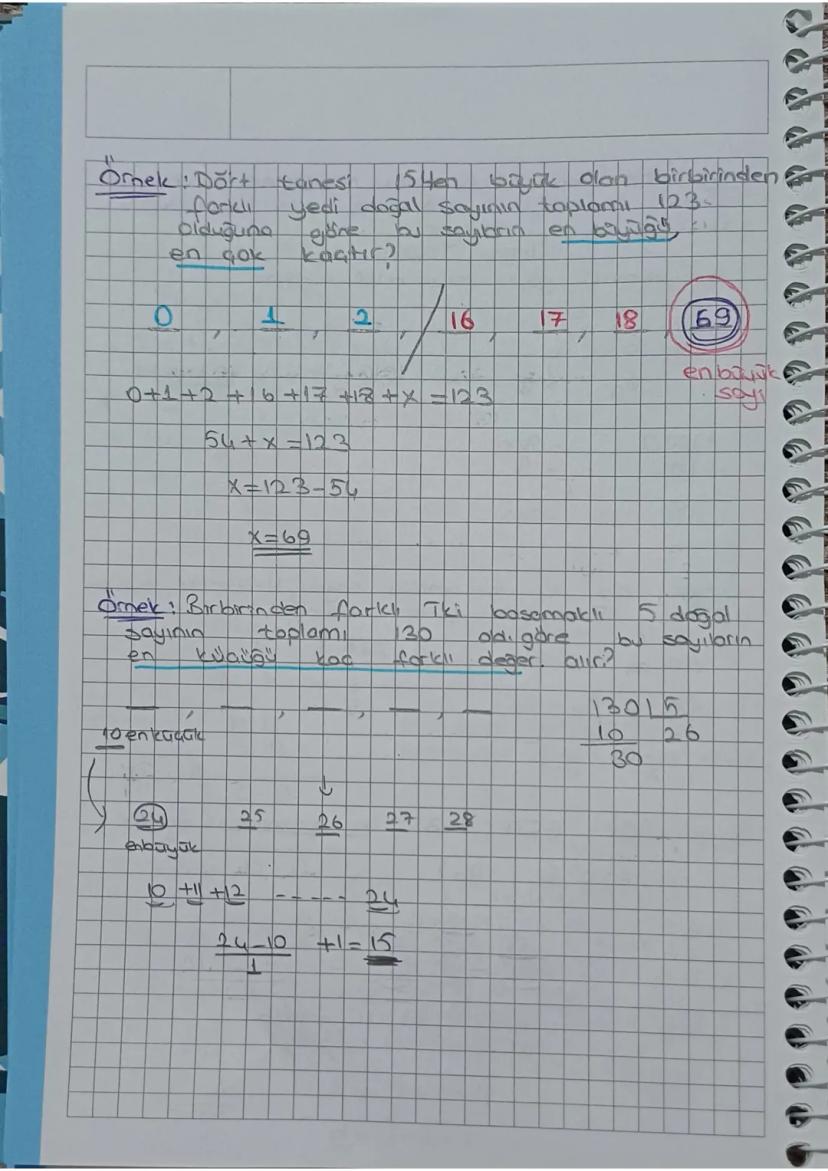 Örnek: Dört tanesi 15'ten büyük olan birbirinden
farklı yedi doğal sayının toplamı 123
olduğuna göre bu sayıların en büyüğü
en çok kaçtır?
0 , 1 , 2 , / 16 , 17 , 18 69
en büyük
sayı
0+1+2+16+17+18+x=123
54+x=123
x=123-54
x=69
Örnek: Birbirinden farklı iki basamaklı 5 doğal
sayının toplamı 130 old. göre bu sayıların
en küçüğü kaç farklı değer alır?
__ , __ , __ , __ , __
130 | 5
10 26
30
10 en küçük
24 25 26 27 28
en büyük
10 +11 +12 ----- 24
24-10 +1=15
1